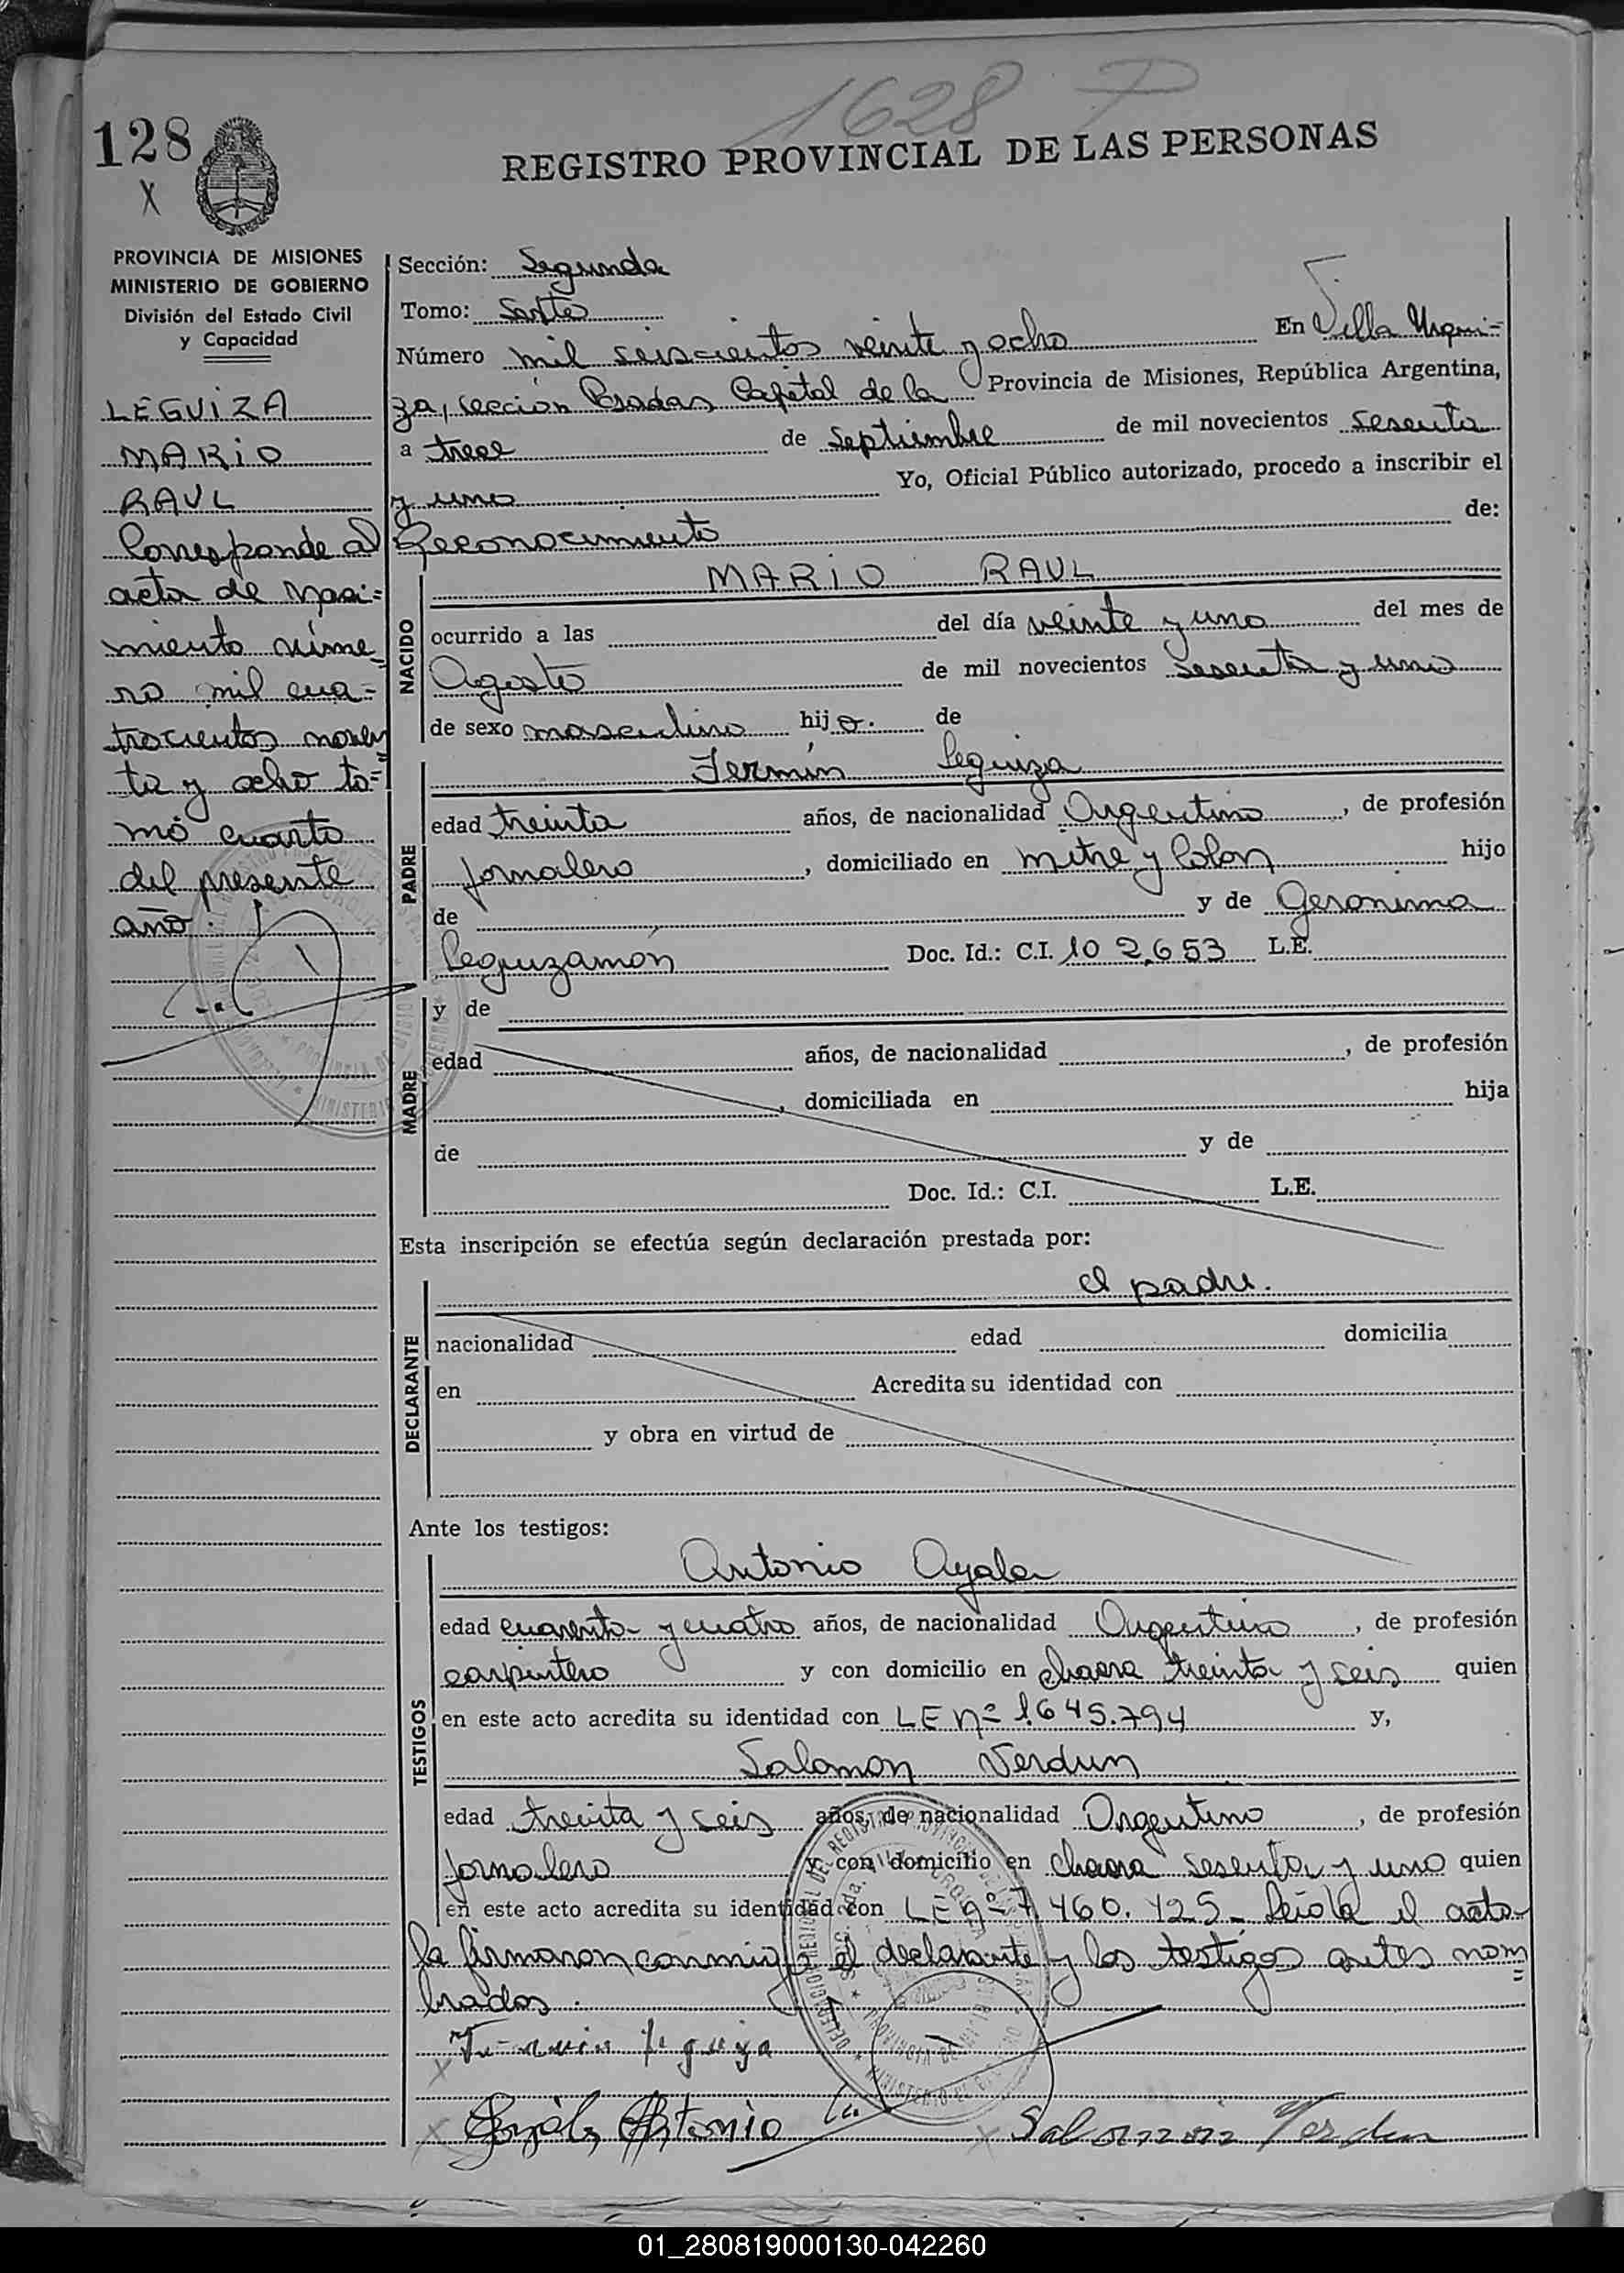 1628 P
128
X
REGISTRO PROVINCIAL DE LAS PERSONAS
PROVINCIA DE MISIONES
MINISTERIO DE GOBIERNO
División del Estado Civil
y Capacidad
LEGUIZA
MARIO
RAUL
Corresponde al
acta de naci=
miento núme
ro mil cua=
trocientos noven
ta y ocho to=
mo cuarto
del presente
año.
Sección: Segunda
Tomo: Santos
Número mil seiscientos veinte y ocho En Villa Urqui=
za, sección Posadas Capital de la Provincia de Misiones, República Argentina,
a trece de Septiembre de mil novecientos sesenta
y uno Yo, Oficial Público autorizado, procedo a inscribir el
Reconocimiento de:
MARIO RAUL
NACIDO
ocurrido a las del día veinte y uno del mes de
Agosto de mil novecientos sesenta y uno
de sexo masculino hijo. de
Fermín Leguiza
PADRE
edad treinta años, de nacionalidad Argentino, de profesión
jornalero, domiciliado en Mitre y Colon hijo
de y de Geronima
Leguizamón Doc. Id.: C.I. 102,653 L.E.
MADRE
y de
edad años, de nacionalidad , de profesión
, domiciliada en hija
de y de
Doc. Id.: C.I. L.E.
Esta inscripción se efectúa según declaración prestada por:
el padre.
DECLARANTE
nacionalidad edad domicilia
en Acredita su identidad con
y obra en virtud de
Ante los testigos:
Antonio Ayala
TESTIGOS
edad cuarenta y cuatro años, de nacionalidad Argentino, de profesión
carpintero y con domicilio en chacra treinta y seis quien
en este acto acredita su identidad con LE nº 1.645.794 y,
Salomon Verdun
edad treinta y seis años, de nacionalidad Argentino, de profesión
jornalero y con domicilio en chacra sesenta y uno quien
en este acto acredita su identidad con LE nº 7.460.425_ Leída el acta
la firmaron conmigo el declarante y los testigos antes nom=
brados.
Fermin Leguiza
Antonio Salomón Verdun
01_280819000130-042260